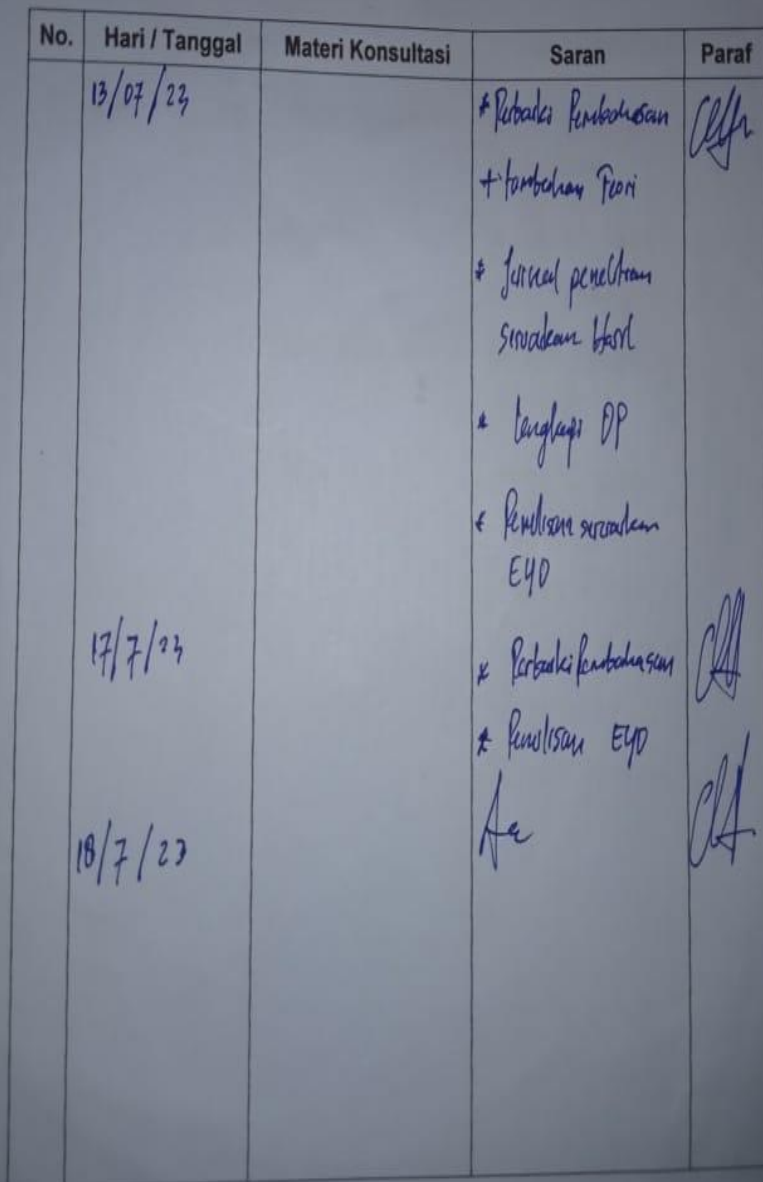 No. Hari / Tanggal Materi Konsultasi Saran Paraf
13/07/23 * Perbaiki Pembahasan
+ tambahan Teori
* Jurnal penelitian
sesuaikan Hasil
* lengkapi DP
* Penulisan sesuaikan
EYD
17/7/23 * Perbaiki Pembahasan
* Penulisan EYD
18/7/23 Acc